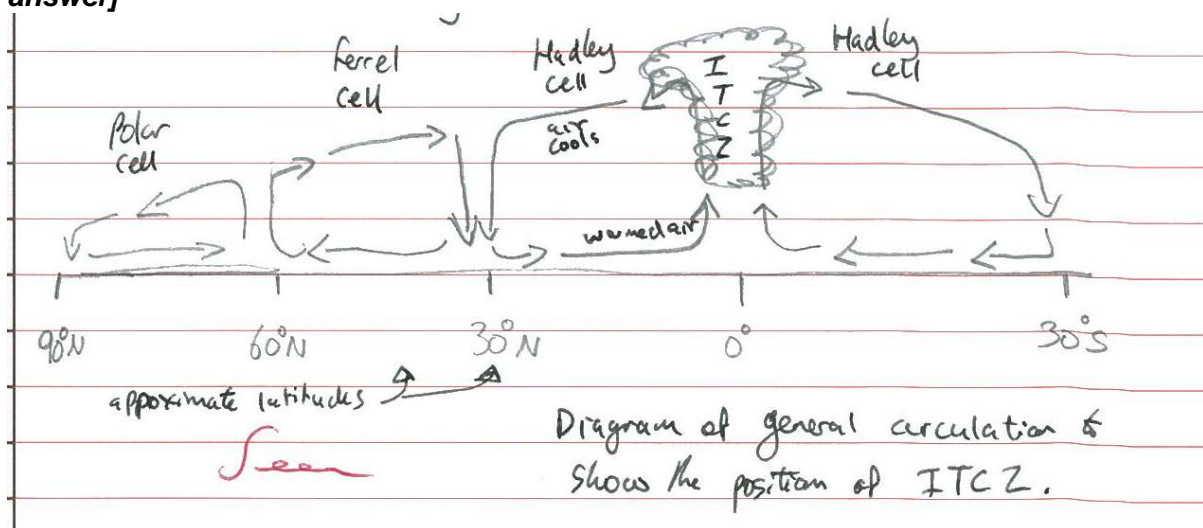 answer]
Ferrel
cell
Hadley
cell
I
T
C
Z
Hadley
cell
Polar
cell
air
cools
warmed air
90°N
60°N
30°N
0°
30°S
approximate latitudes
Seen
Diagram of general circulation &
shows the position of ITCZ.